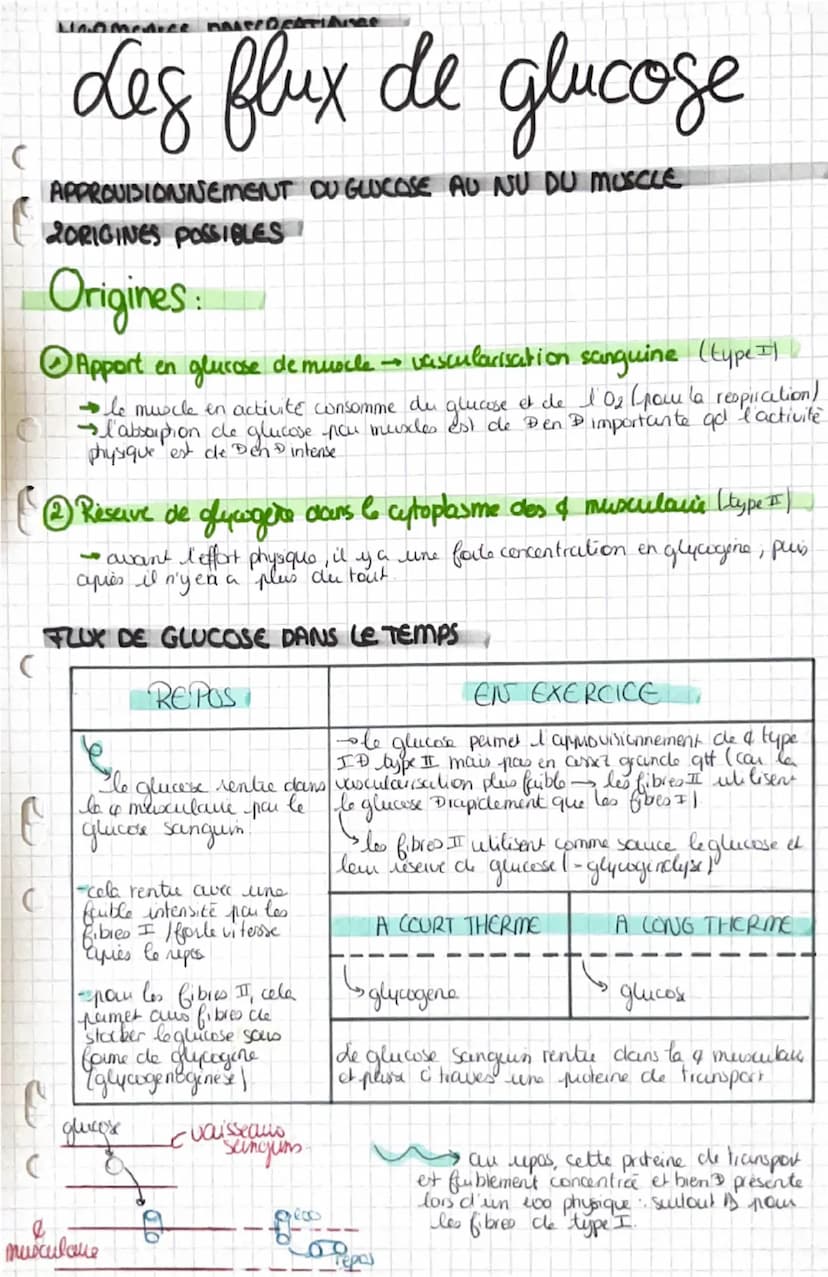 Les flux de glucose
APPROVISIONNEMENT DU GLUCOSE AU NU DU MUSCLE
2 ORIGINES POSSIBLES
Origines :
① Apport en glucose de muscle → vascularisation sanguine (type I)
→ le muscle en activité consomme du glucose et de l'O2 (pour la respiration)
→ l'absorption de glucose par muscles est de ⊕ en ⊕ importante qd l'activité
physique est de ⊕ en ⊕ intense
② Réserve de glycogène dans le cytoplasme des ¢ musculaire (type II)
→ avant l'effort physique, il y a une forte concentration en glycogène, puis
après il n'y en a plus du tout.
FLUX DE GLUCOSE DANS LE TEMPS
REPOS
EN EXERCICE
le glucose rentre dans
la ¢ musculaire par le
glucose sanguin.
-cela rentre avec une
faible intensité par les
fibres I / forte vitesse
après le repos
-pour les fibres II, cela
permet aux fibres de
stocker le glucose sous
forme de glycogène
(glycogénogénèse)
→ le glucose permet l'approvisionnement de ¢ type
I ⊕ type II mais pas en assez grande qtt (car la
vascularisation plus faible → les fibres II utilisent
le glucose ⊕ rapidement que les fibres I)
↳ les fibres II utilisent comme source le glucose et
leur réserve de glucose (-glycogénolyse)
A COURT THERME
A LONG THERME
↳ glycogene
↳ glucose
Le glucose sanguin rentre dans la ¢ musculaire
et passe à travers une proteine de transport
glucose
vaisseaux
sanguins
→ au repos, cette proteine de transport
est faiblement concentrée et bien ⊕ présente
lors d'un exo physique : surtout pour
les fibres de type I.
exo
repos
¢
musculaire